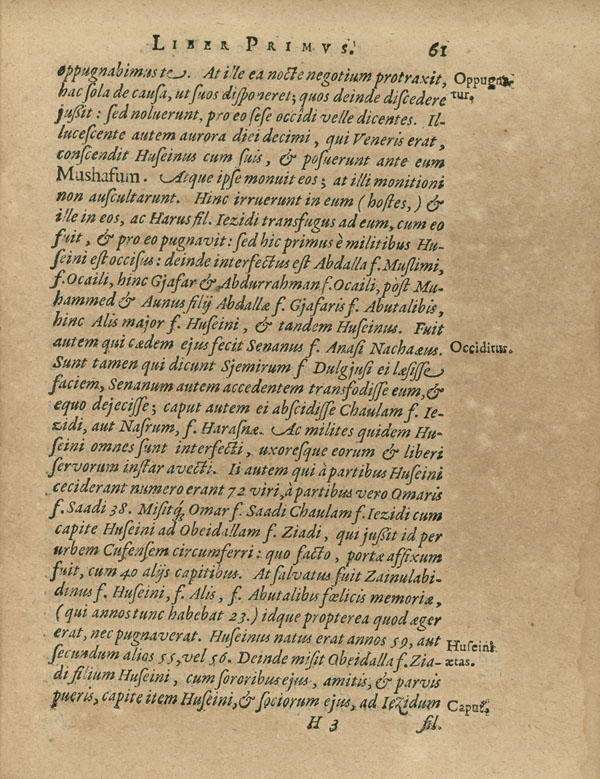 LIBER PRIMVS. 61
oppugnabimus te. At ille ea nocte negotium protraxit,
Oppugna-
tur.
hac sola de causa, ut suos disponeret; quos deinde discedere
jußit: sed noluerunt, pro eo sese occidi velle dicentes. Il-
lucescente autem aurora diei decimi, qui Veneris erat,
conscendit Huseinus cum suis, & posuerunt ante eum
Mushafum. Atque ipse monuit eos; at illi monitioni
non auscultarunt. Hinc irruerunt in eum (hostes,) &
ille in eos, ac Harus fil. Iezidi transfugus ad eum, cum eo
fuit, & pro eo pugnavit: sed hic primus è militibus Hu-
seini est occisus: deinde interfectus est Abdalla f. Muslimi,
f. Ocaili, hinc Gjafar & Abdurrahman f. Ocaili, pòst Mu-
hammed & Aunus filij Abdallæ f. Gjafaris f. Abutalibis,
hinc Alis major f. Huseini, & tandem Huseinus. Fuit
autem qui cædem ejus fecit Senanus f. Anasi Nachaæus.
Occiditur.
Sunt tamen qui dicunt Sjemirum f Dulgjusi ei læsisse
faciem, Senanum autem accedentem transfodisse eum, &
equo dejecisse; caput autem ei abscidisse Chaulam f. Ie-
zidi, aut Nasrum, f. Harasnæ. Ac milites quidem Hu-
seini omnes sunt interfecti, uxoresque eorum & liberi
servorum instar avecti. Ii autem qui à partibus Huseini
ceciderant numero erant 72 viri, à partibus vero Omaris
f. Saadi 38. Misitq; Omar f. Saadi Chaulam f. Iezidi cum
capite Huseini ad Obeidallam f. Ziadi, qui jußit id per
urbem Cufensem circumferri: quo facto, portæ affixum
fuit, cum 40 alijs capitibus. At salvatus fuit Zainulabi-
dinus f. Huseini, f. Alis, f. Abutalibus fœlicis memoriæ,
(qui annos tunc habebat 23.) idque propterea quod æger
erat, nec pugnaverat. Huseinus natus erat annos 59, aut
Huseini
ætas.
secundum alios 55, vel 56. Deinde misit Obeidalla f. Zia-
di filium Huseini, cum sororibus ejus, amitis, & parvis
pueris, capite item Huseini, & sociorum ejus, ad Iezidum
Caput.
H 3 fil.